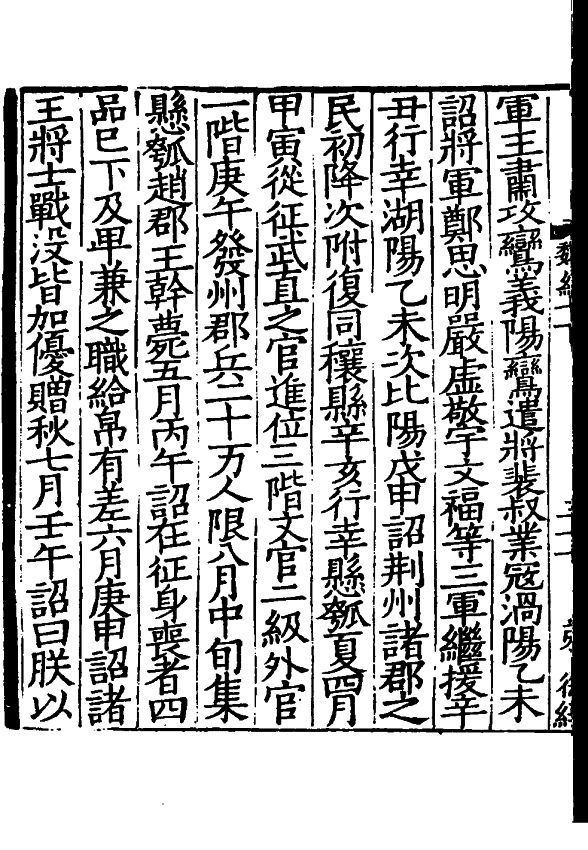 軍王肅攻鸞義陽鸞遣將裴叔業寇渦陽乙未
詔將軍鄭思明嚴虛敬宇文福等三軍繼援辛
丑行幸湖陽乙未次比陽戊申詔荆州諸郡之
民初降次附復同穰縣辛亥行幸懸瓠夏四月
甲寅從征武直之官進位三階文官二級外官
一階庚午發州郡兵二十万人限八月中旬集
懸瓠趙郡王幹薨五月丙午詔在征身喪者四
品巳下及甲兼之職給帛有差六月庚申詔諸
王將士戰沒皆加優贈秋七月壬午詔曰朕以